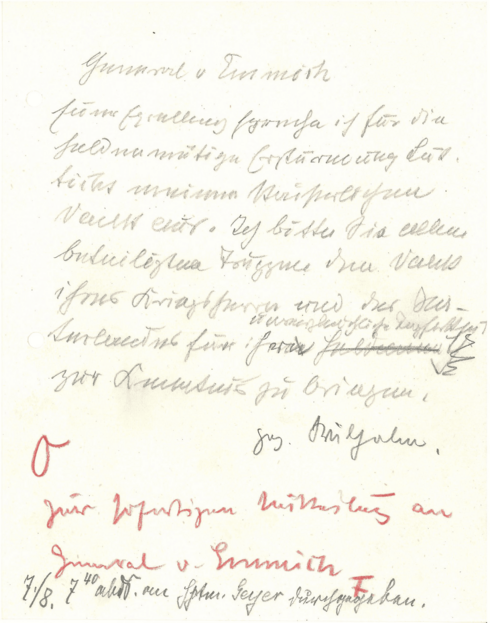 General v Emmich
Eurer Exzellenz spreche ich für die
heldenmütige Erstürmung Lüt-
tichs meinen Kaiserlichen
Dank aus. Ich bitte Sie allen
beteiligten Truppen den Dank
ihres Kriegsherrn und des Va-
unvergleichliche Tapferkeit
terlandes für ihre
zur Kenntnis zu bringen.
gez. Wilhelm.
zur sofortigen Mitteilung an
General v. Emmich
7./8. 7 40 abds. an Hptm. Geyer durchgegeben.